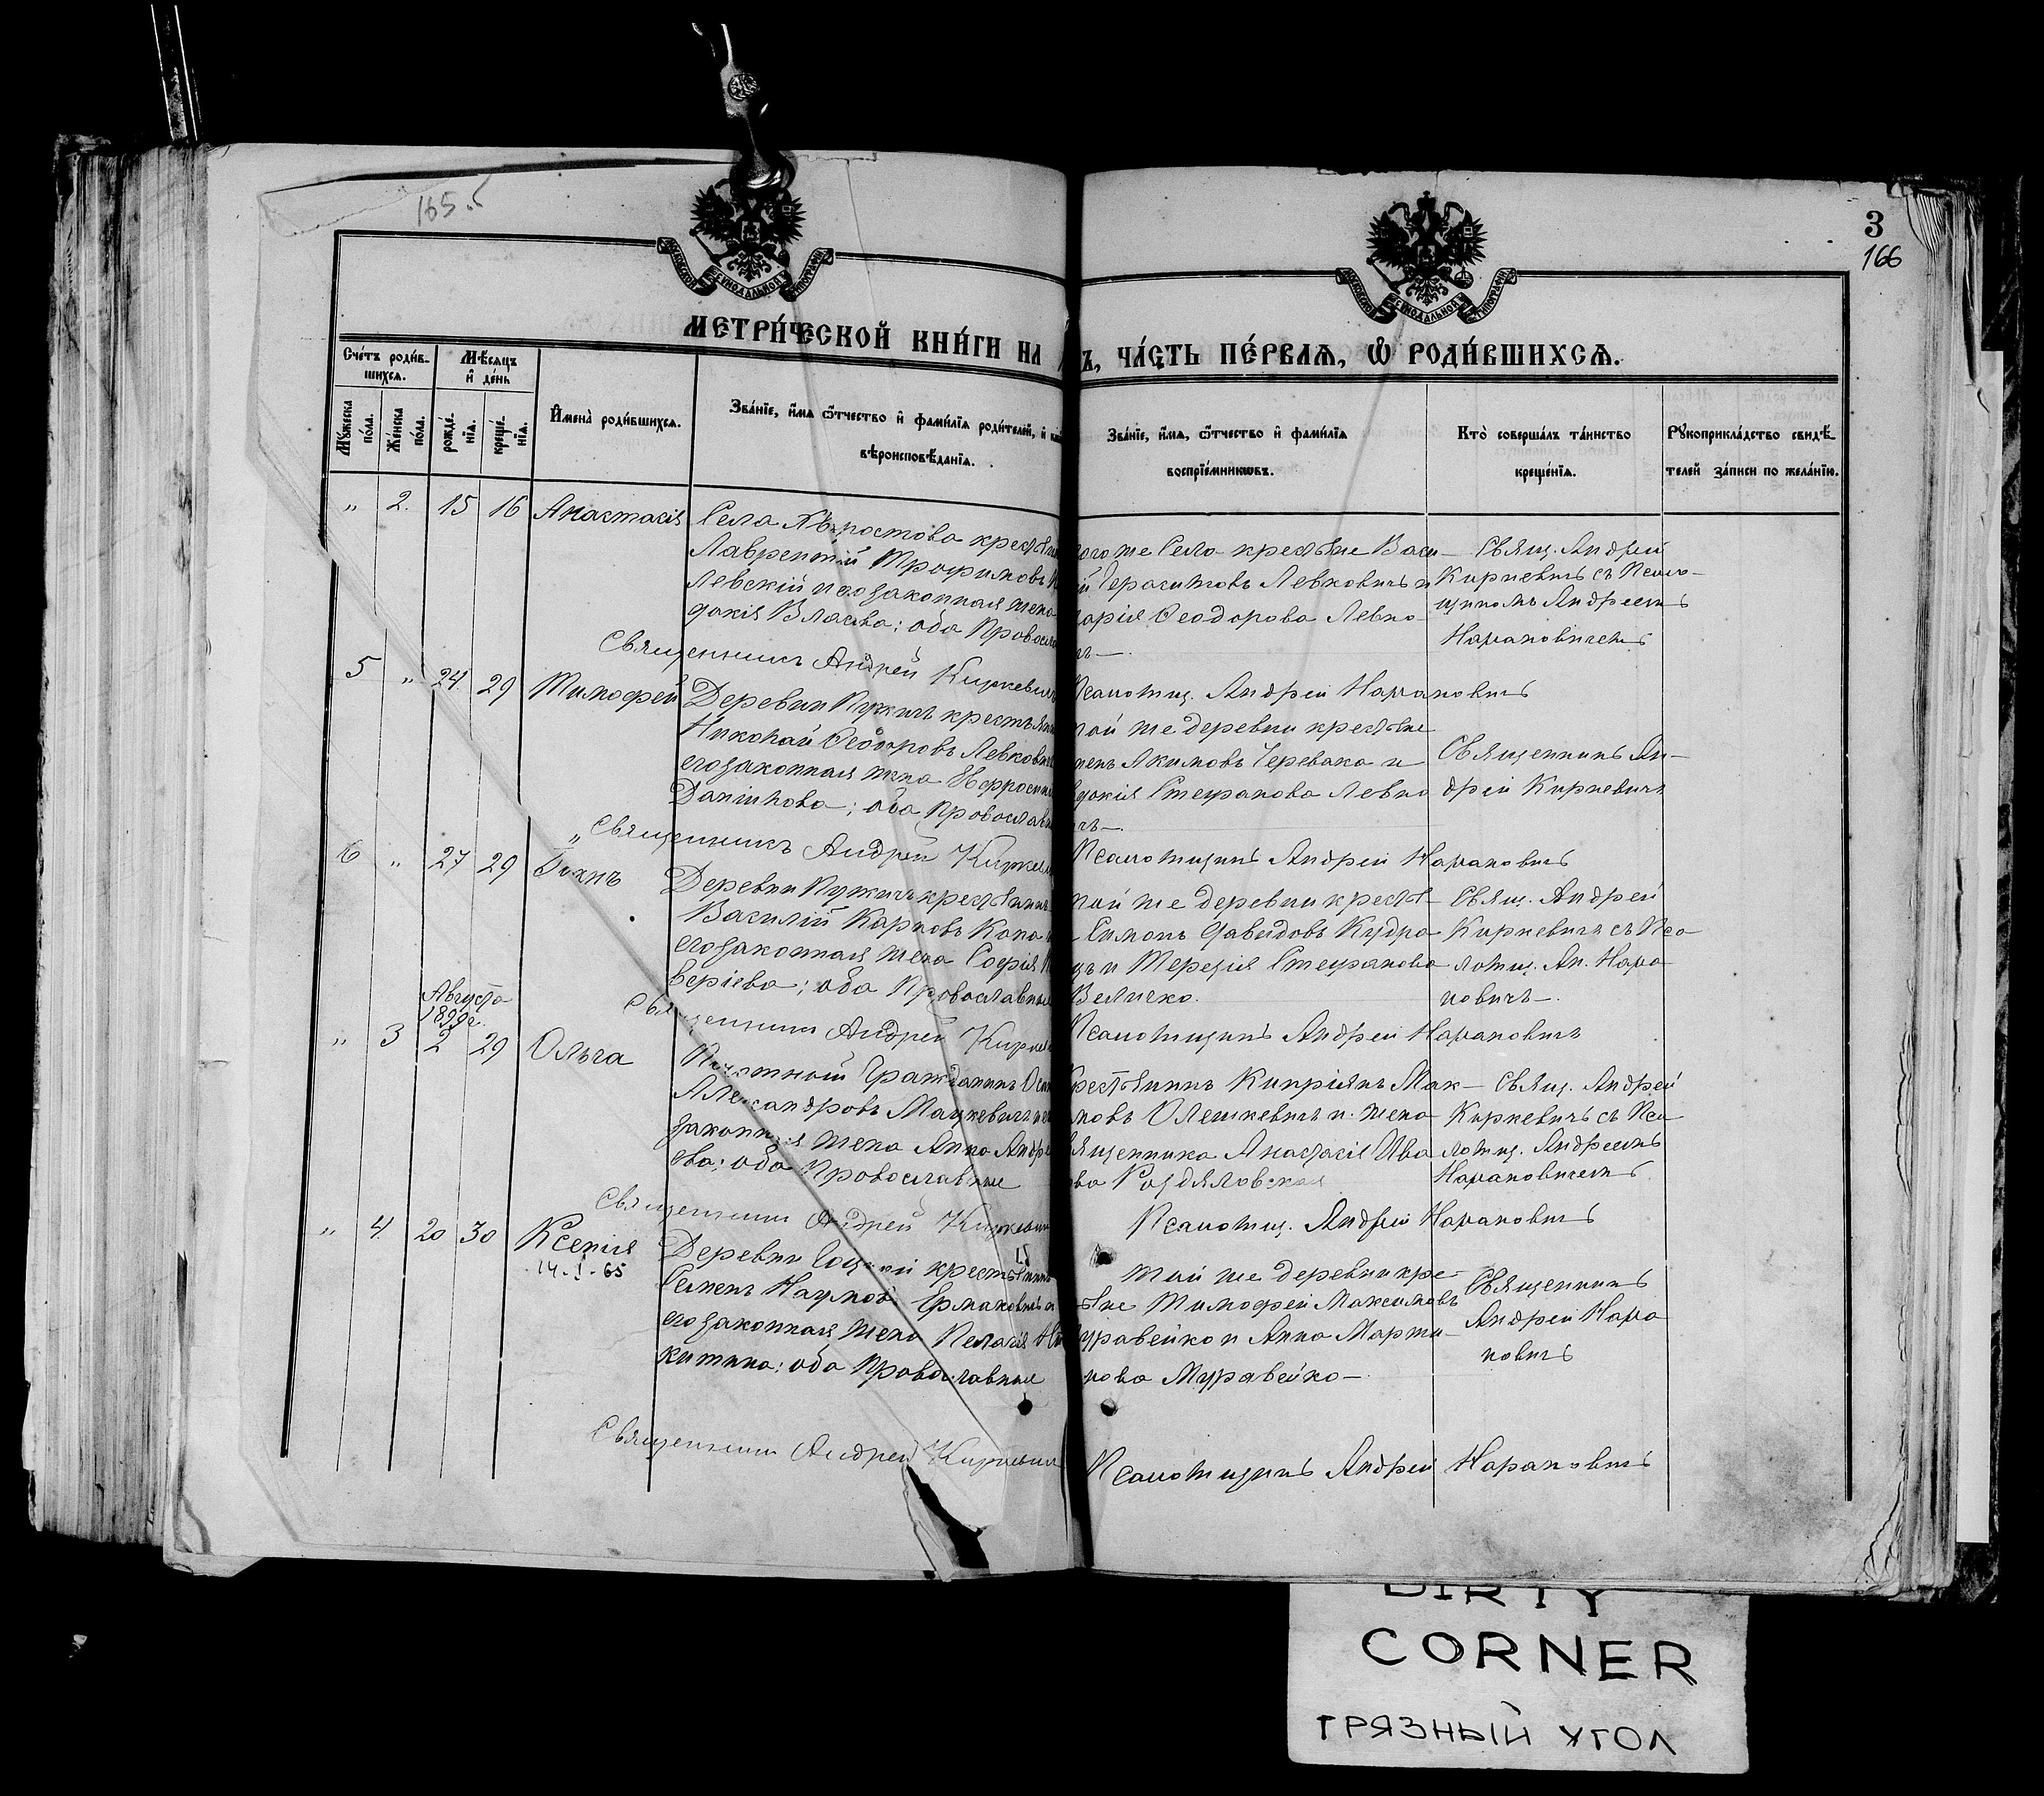 165.
3
166
МОСКОВСКОЙ СИНОДАЛЬНОЙ ТИПОГРАФІИ
МОСКОВСКОЙ СИНОДАЛЬНОЙ ТИПОГРАФІИ
МЕТРИ́ЧЕСКОЙ КНИ́ГИ НА
Ъ, ЧА́СТЬ ПЕ́РВАѦ, Ѡ҆ РОДИ́ВШИХСѦ.
Сче́тъ роди́в-
шихсѧ.
Мѣ́сѧцъ
и҆ де́нь
Мꙋ́жеска
по́ла.
Же́нска
по́ла.
рожде́-
нїѧ.
креще́-
нїѧ.
И҆мена̀ роди́вшихсѧ.
Зва́нїе, и҆́мѧ ѻ҆́тчество и҆ фами́лїѧ роди́телей, и҆
вѣроисповѣ́данїѧ.
Зва́нїе, и҆́мѧ, ѻ҆́тчество и҆ фами́лїѧ
воспрїе́мникѡвъ.
Кто̀ соверша́лъ та́инство
креще́нїѧ.
Рꙋкоприкла́дство свидѣ́-
телей за́писи по жела́нїю.
" 2. 15 16 Анастасія Села крестьян
Лаврентій Трофимовъ
левскій и его законная жена
докія Власова; оба Правосла
того же Села крестьяне Васи-
й Герасимовъ Левковичъ и
Марія Феодорова Левко
чъ—.
Свящ. Андрей
Киркевичъ съ Псало-
щикомъ Андреемъ
Нарановичемъ
Священникъ Андрей Киркевичъ
Псаломщ. Андрей Нарановичъ
5 " 24 29 Тимофей Деревни Пужичъ крестьян
Николай Феодоровъ Левкович
его законная жена Ефросинія
Даніилова; оба Православн
той же деревни крестьяне
Якимовъ Черевака и
докія Стефанова Левко
чъ—.
Священникъ Ан-
дрей Киркевичъ
Священникъ Андрей Киркев
Псаломщикъ Андрей Нарановичъ
6 " 27 29 Іоаннъ Деревни Пужичъ крестьянинъ
Василій Карповъ Кока
его законная жена Софія
веріева; оба Православные
той же деревни крестья-
Симонъ Давидовъ Кудра
и Терезія Стефанова
Величко.
Свящ. Андрей
Киркевичъ съ Пса-
ломщ. Ан. Нара
новичъ—.
Священникъ Андрей Кирке
Псаломщикъ Андрей Нарановичъ
Августа
1899 г.
" 3 2 29 Ольга Почетный Гражданинъ
Александровъ Мацкевичъ и его
законная жена Анна Андре
ева; оба Православные
крестьянинъ Кипріянъ Мак-
мовъ Олешкевичъ и жена
священника Анастасія Ива
ва Роздяловская
Свящ. Андрей
Киркевичъ съ Пса
ломщ. Андреемъ
Нарановичемъ
Священникъ Андрей Киркевич
Псаломщ. Андрей Нарановичъ
" 4. 20 30 Ксенія
14-I-65
Деревни крестьянинъ
Семенъ Наумовъ Ермаковичъ и
его законная жена Пелагія Ни
китина; оба Православные
той же деревни кре-
яне Тимофей Максимовъ
уравейко и Анна Марти-
нова Муравейко—
Священникъ
Андрей Нара
новичъ
Священникъ Андрей Киркевич
Псаломщикъ Андрей Нарановичъ
DIRTY
CORNER
ГРЯЗНЫЙ УГОЛ